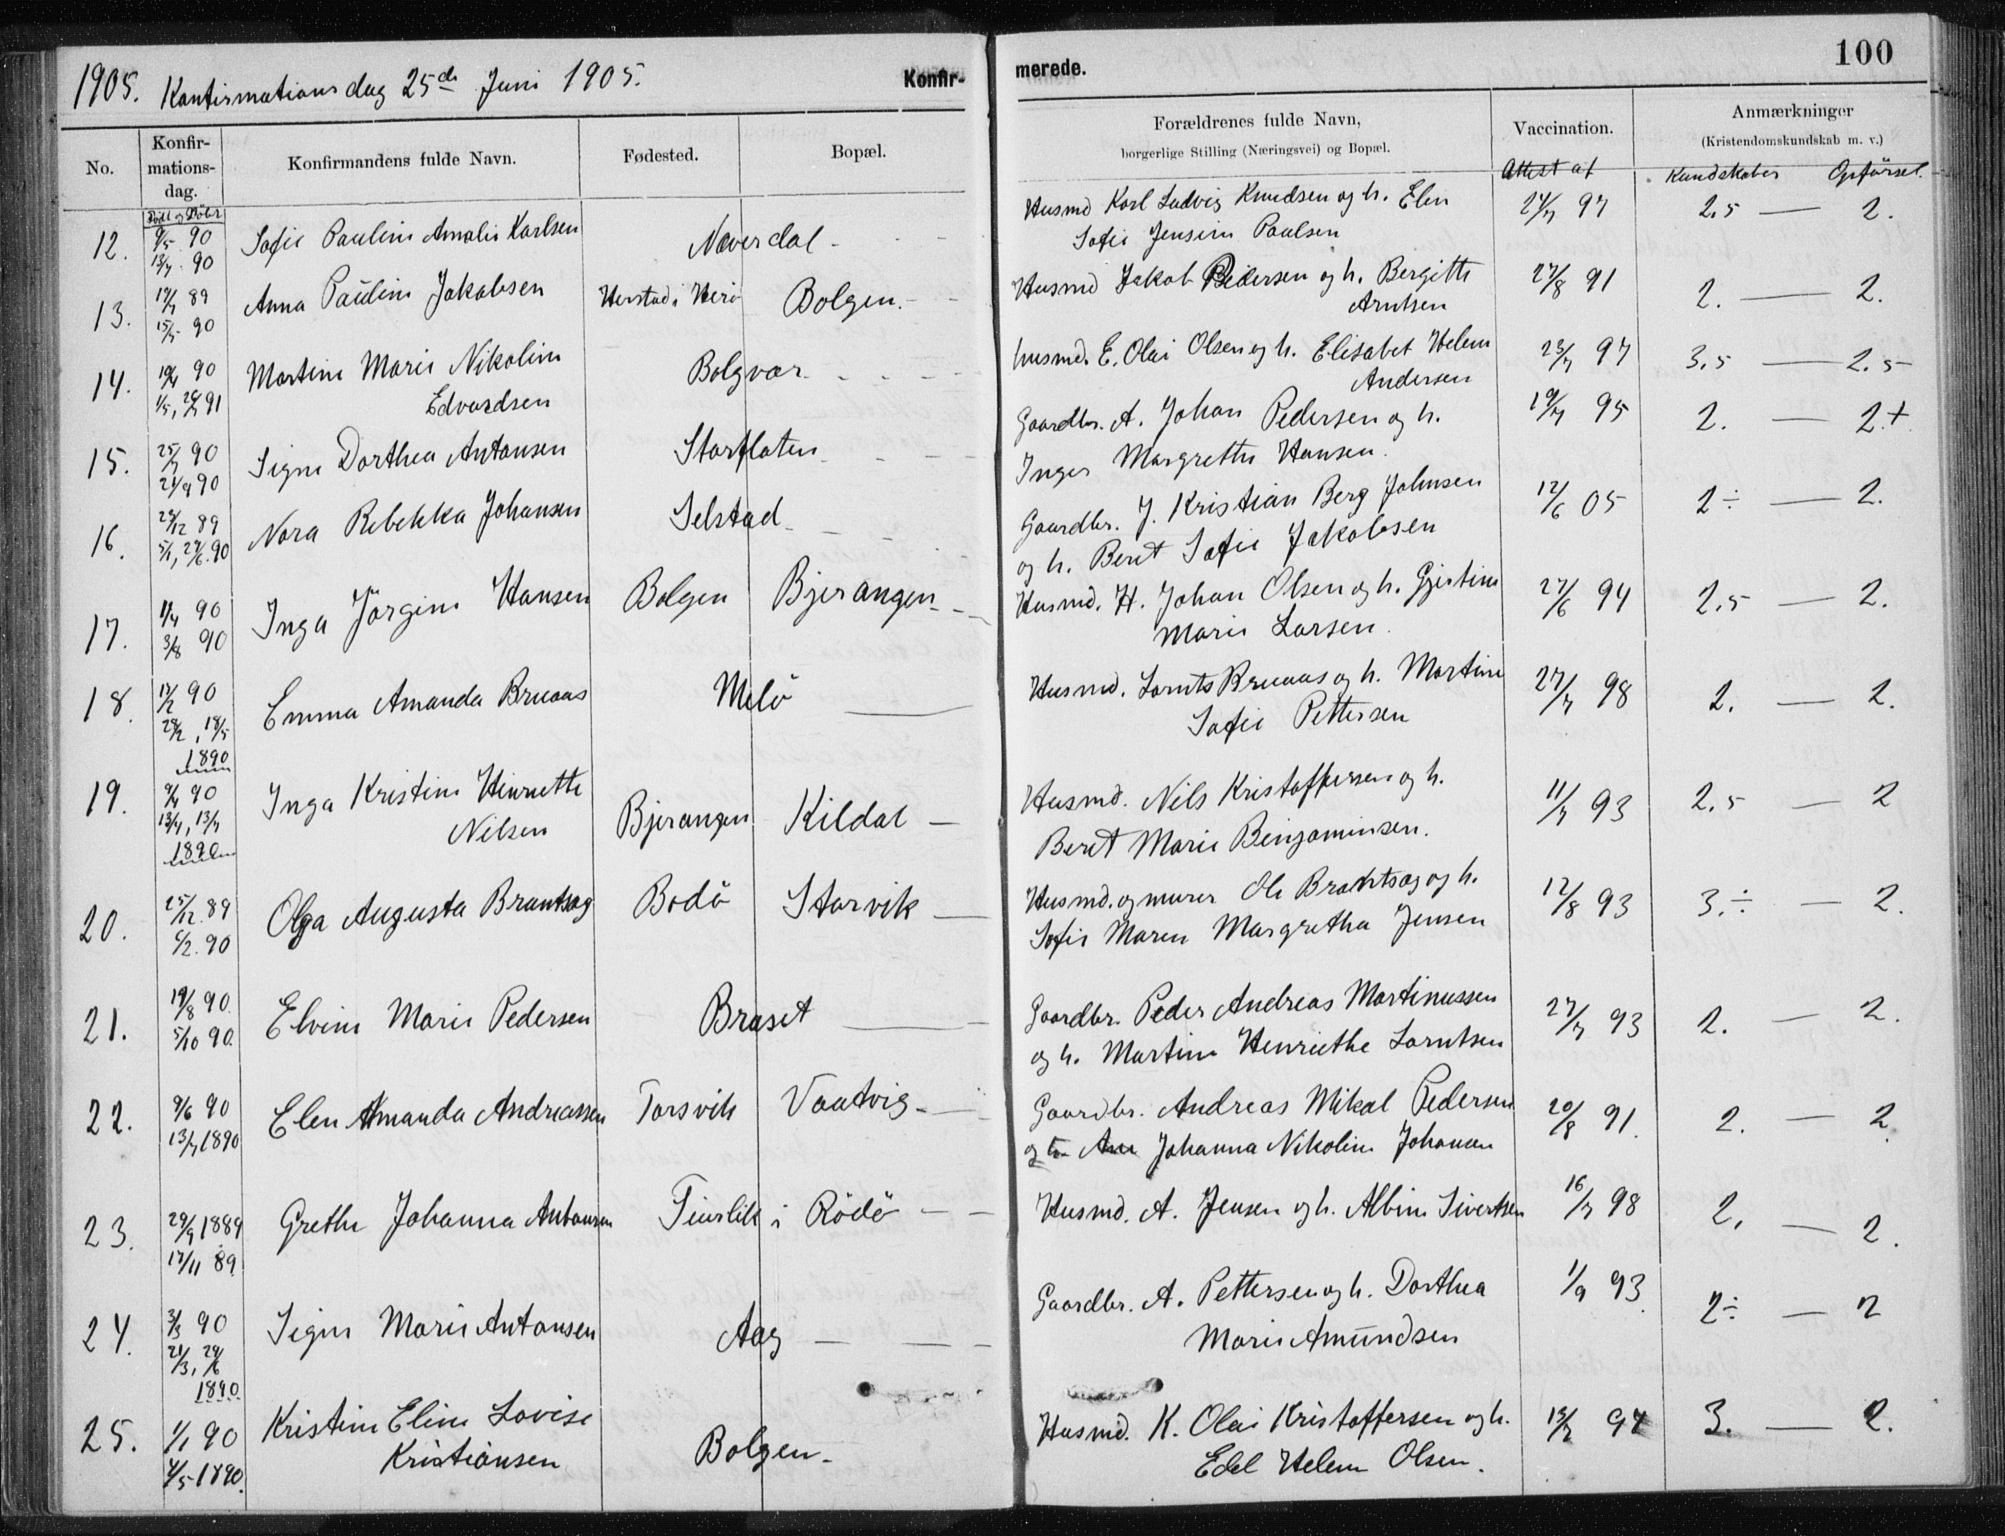 1905. Konfirmationsdag 25de Juni 1905.
Konfir-
merede.
100
No.
Konfir-
mations-
dag.
Konfirmandens fulde Navn.
Fødested.
Bopæl.
Forældrenes fulde Navn,
borgerlige Stilling (Næringsvei) og Bopæl.
Vaccination.
Anmærkninger
(Kristendomskundskab m. v.)
Født og Døbt
Attest af
Kundskaber Opførsel.
12. 9/5 90 Sofie Pauline Amalie Karlsen Næverdal - Husmd Karl Ludvig Knudsen og h. Elen 24/7 97 2.5 — 2.
13/7 90 Sofie Jensine Paulsen
13. 17/7 89 Anna Pauline Jakobsen Herstad i Herö Bolgen. - Husmd Jakob Pedersen og h. Bergitte 27/8 91 2. — 2.
15/5 90 Arntsen
14. 19/4 90 Martine Marie Nikoline Bolgvær. Husmd. E. Olai Olsen og h. Elisabet Helene 23/7 97 3.5 — 2.5
1/5, 26/7 91 Edvardsen Andersen
15. 25/7 90 Signe Dorthea Antonsen Storflaten Gaardbr. A. Johan Pedersen og h. 19/7 95 2. — 2.+
21/9 90 Inger Margrethe Hansen.
16. 24/12 89 Nora Rebekka Johansen Selstad Gaardbr. J. Kristian Berg Johnsen 12/6 05 2 ÷ — 2.
5/1, 29/6. 90 og h. Beret Sofie Jakobsen
17. 1/4 90 Inga Jörgine Hansen Bolgen Bjerangen Husmd. H. Johan Olsen og h. Gjertine 27/6 94 2.5 — 2.
3/8 90 Marie Larsen.
18. 17/2 90 Emma Amanda Bruaas Melö — Husmd. Lornts Bruaas og h. Martine 27/7 98 2. — 2.
28/2, 18/5 Sofie Pettersen
1890
19. 9/4 90 Inga Kristine Henriette Bjerangen Kildal — Husmd. Nils Kristoffersen og h. 11/7 93 2.5 — 2
13/4, 13/7 Nilsen Beret Marie Benjaminsen.
1890
20. 25/12. 89 Olga Augusta Brantsag Bodö Storvik — Husmd. og murer Ole Brantsag og h. 12/8 93 3. ÷ — 2.
6/2. 90 Sofie Maren Margretha Jensen
21. 19/8 90. Elvine Marie Pedersen Braset — Gaardbr. Peder Andreas Martinussen 27/7 93 2. — 2.
5/10 90. og h. Martine Henriethe Lorntsen
22. 9/6 90 Elen Amanda Andreassen Torsvik Vaatvig - Gaardbr. Andreas Mikal Pedersen 20/8 91. 2. — 2.
13/7 1890 og h. Ane Johanna Nikoline Johansen
23. 29/9 1889 Grethe Johanna Antonsen i Rödö — Husmd. A. Jensen og h. Albine Sivertsen 16/7 98 2. — 2.
17/11 89.
24. 3/3 90 Signe Marie Antonsen Aag — Gaardbr. A. Pettersen og h. Dorthea 1/9 93. 2 ÷ — 2
21/3, 24/6 Marie Amundsen
1890.
25. 1/1 90 Kristine Eline Lovise Bolgen. Husmd. K. Olai Kristoffersen og h. 94 3. — 2.
4/5 1890. Kristiansen Edel Helene Olsen.